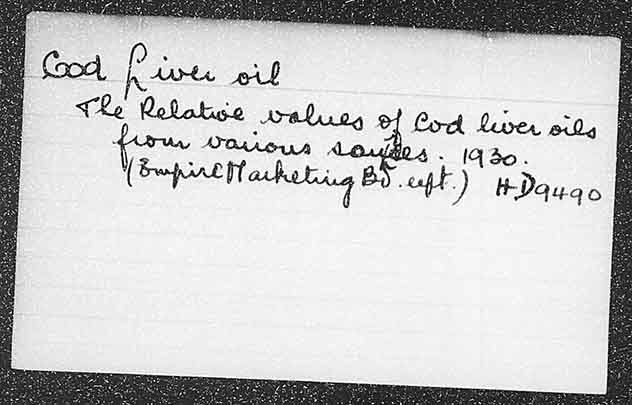 Cod Liver oil
The Relative values of Cod liver oils
from various sources. 1930.
(Empire Marketing Bd. rept.) HD9490